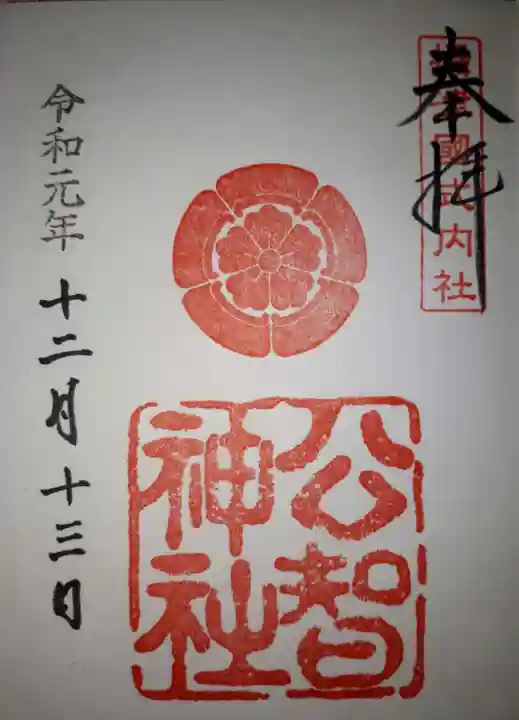 奉拝
攝津國式内社
公智
神社
令和元年 十二月十三日